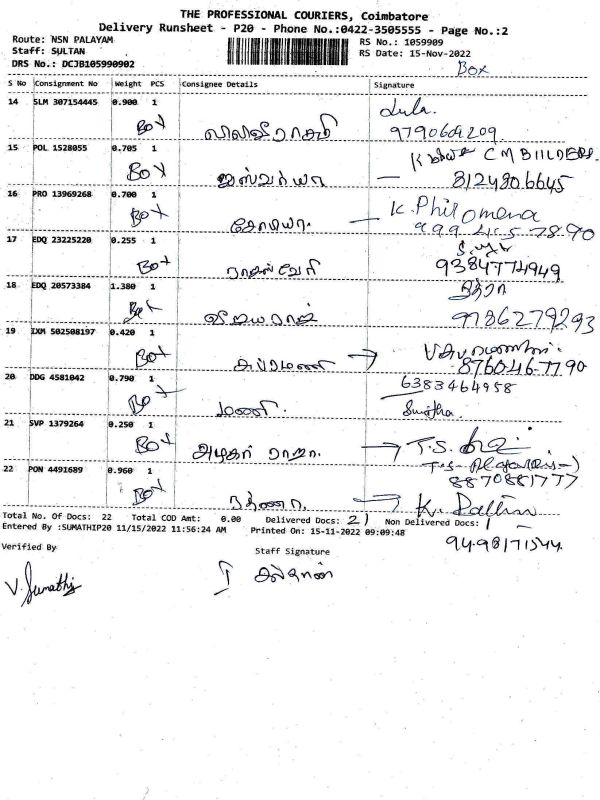 THE PROFESSIONAL COURIERS, Coimbatore
Delivery Runsheet - P20 - Phone No.:0422-3505555 - Page No.:2
Route: NSN PALAYAM
RS No.: 1059909
Staff: SULTAN
RS Date: 15-Nov-2022
DRS No.: DCJB105990902
Box
S No Consignment No Weight PCS Consignee Details Signature
14 SLM 307154445 0.900 1
Box
9790602209
15 POL 1528055 0.705 1
CM BIILDERS.
Box ஐஸ்வர்யா — 8124806645
16 PRO 13969268 0.700 1
Box சோபியா. — K. Philomena
999 445 7890
17 EDQ 23225220 0.255 1
Box ராகஸ்வேரி 9384774949
18 EDQ 20573384 1.380 1
Box விஜயராஜ் 9786279293
19 IXM 502508197 0.420 1
Box சுப்ரமணி →
8760467790
20 DDG 4581042 0.790 1 6383464958
Box மணி. Sunitha.
21 SVP 1379264 0.250 1
Box அழகர் ராஜா. → T.S.
8870881777
22 PON 4491689 0.960 1
Box ரத்னா. → K.
Total No. Of Docs: 22 Total COD Amt: 0.00 Delivered Docs: 21 Non Delivered Docs: 1
Entered By :SUMATHIP20 11/15/2022 11:56:24 AM Printed On: 15-11-2022 09:09:48
94-98171544.
Verified By
Staff Signature
V. Sumathi